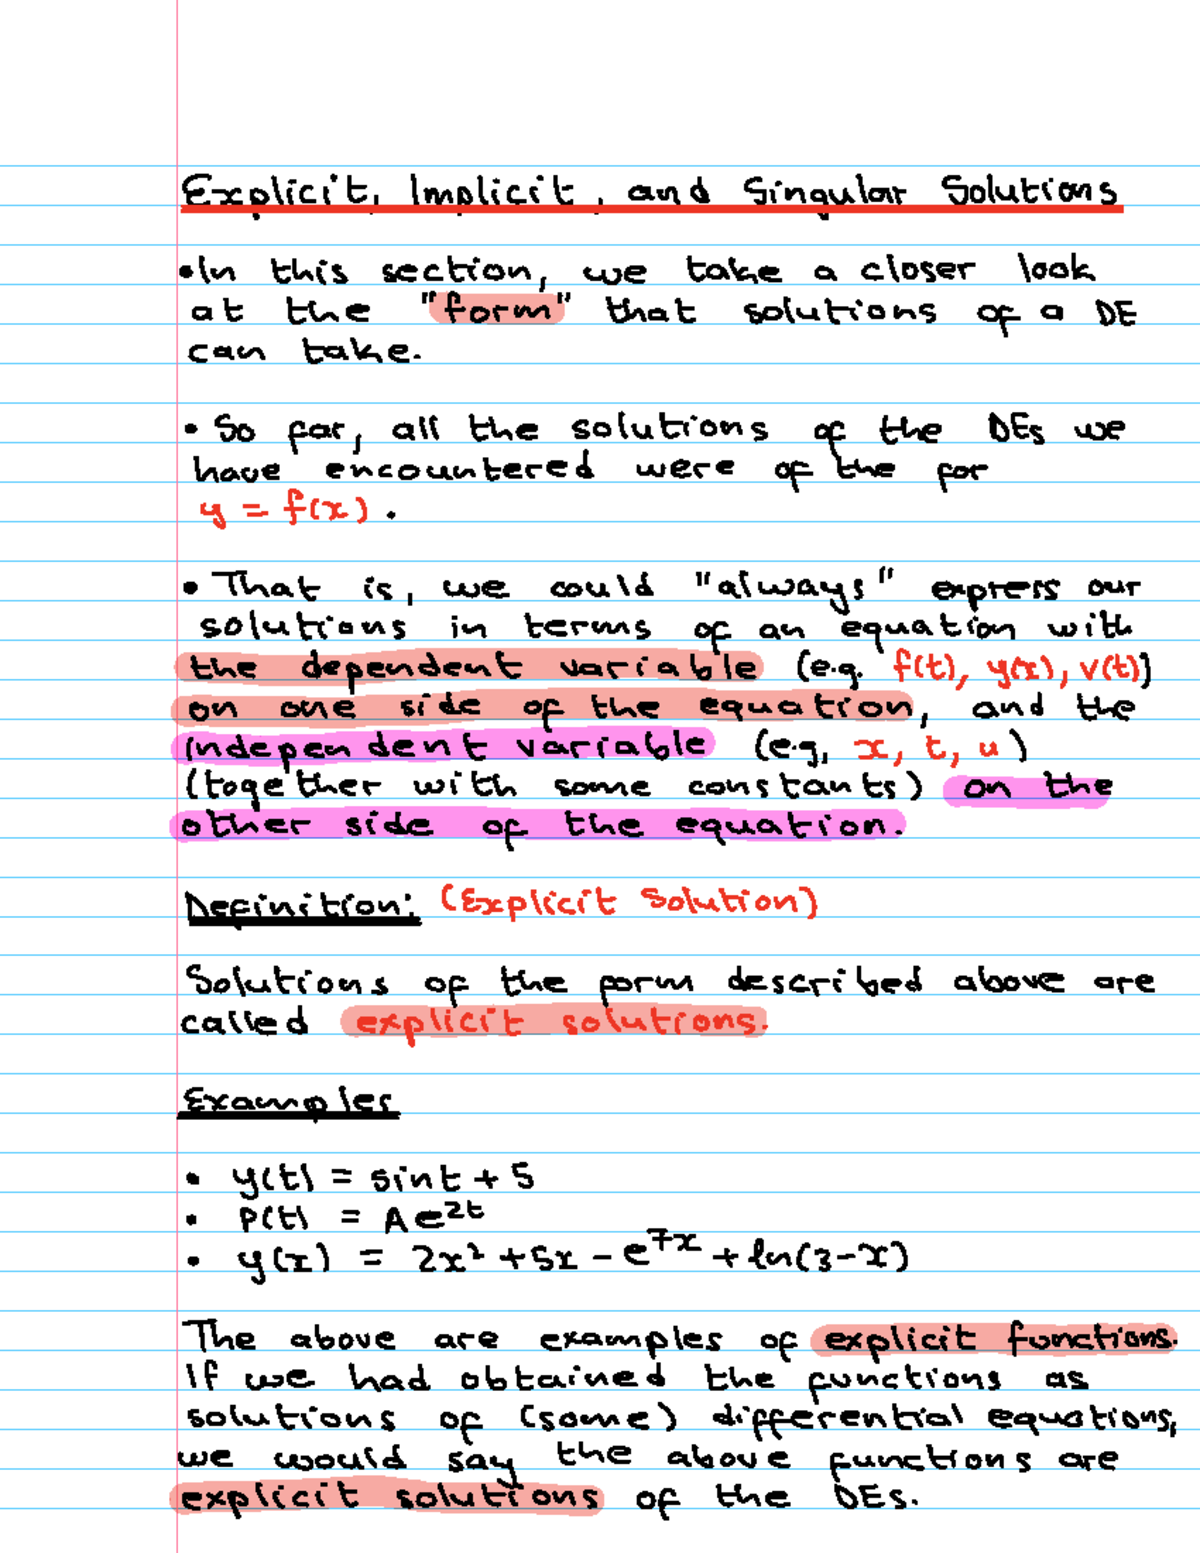 Explicit, Implicit, and Singular Solutions
•In this section, we take a closer look
at the "form" that solutions of a DE
can take.
• So far, all the solutions of the DEs we
have encountered were of the for
y = f(x).
• That is, we could "always" express our
solutions in terms of an equation with
the dependent variable (e.g. f(t), y(x), v(t))
on one side of the equation, and the
independent variable (e.g, x, t, u)
(together with some constants) on the
other side of the equation.
Definition: (Explicit Solution)
Solutions of the form described above are
called explicit solutions.
Examples
• y(t) = sint + 5
• P(t) = Ae^{2t}
• y(x) = 2x² + 5x - e^{7x} + ln(3-x)
The above are examples of explicit functions.
If we had obtained the functions as
solutions of (some) differential equations,
we would say the above functions are
explicit solutions of the DEs.